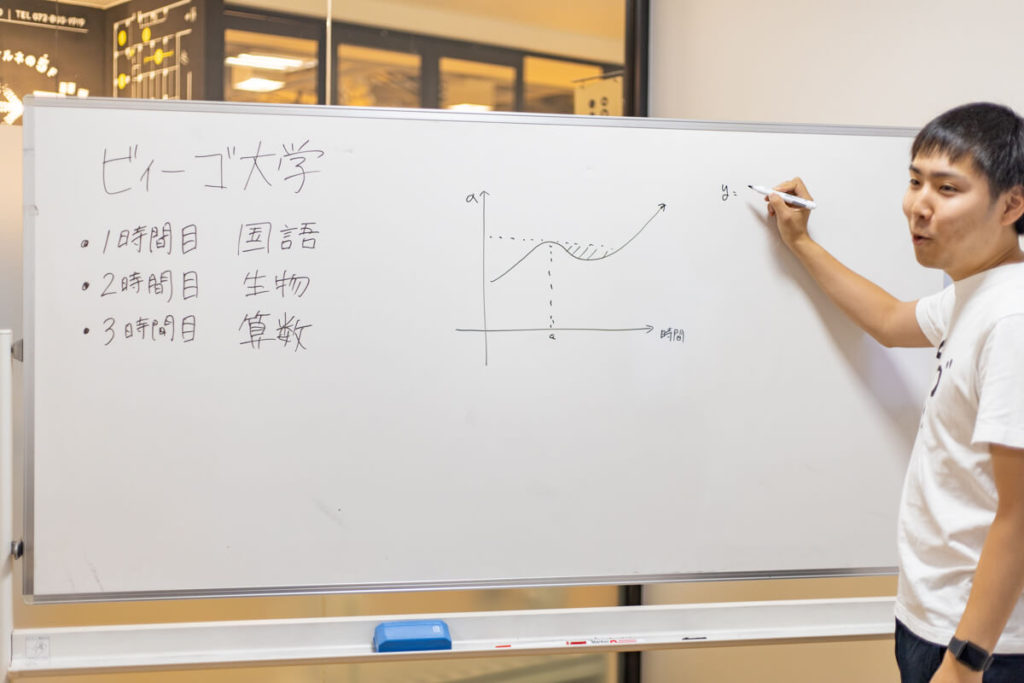 TEL 072-830-1919
ビィーゴ大学
・1時間目 国語
・2時間目 生物
・3時間目 算数
a
a
時間
y=